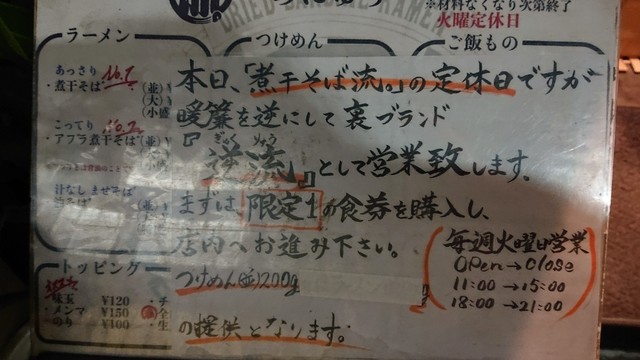 ※材料なくなり次第終了
火曜定休日
ラーメン
つけめん
ご飯もの
あっさり No.1
・煮干そば
(並)
(大)
小盛
こってり No.2
・アブラ煮干そば
汁なし まぜそば
トッピング
味玉 ¥120
・メンマ ¥150
・のり ¥100
本日、「煮干そば流。」の定休日ですが
暖簾を逆にして裏ブランド
ぎゃく りゅう
『逆流』として営業致します。
まずは、限定1の食券を購入し、
店内へお進み下さい。
つけめん(並)200g
の提供となります。
毎週火曜日営業
OPen→Close
11:00→15:00
18:00→21:00